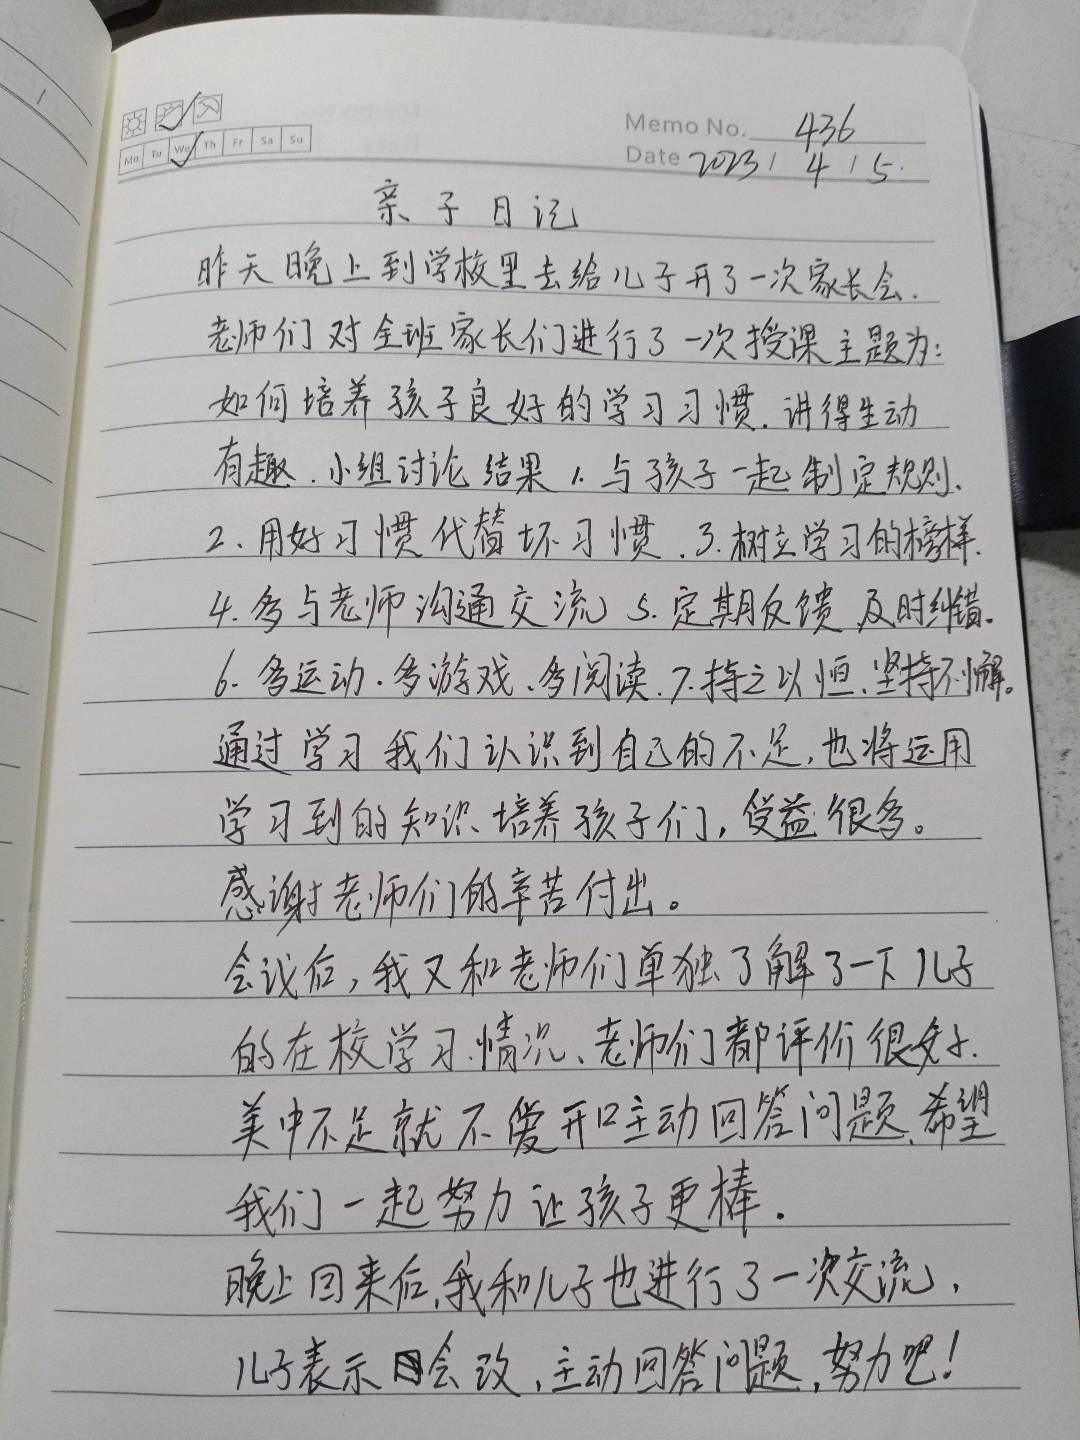 Memo No. 436
Mo Tu We Th Fr Sa Su
Date 2023 / 4 / 5.
亲子日记
昨天晚上到学校里去给儿子开了一次家长会.
老师们对全班家长们进行了一次授课主题为:
如何培养孩子良好的学习习惯.讲得生动
有趣.小组讨论结果1.与孩子一起制定规则.
2.用好习惯代替坏习惯.3.树立学习的榜样.
4.多与老师沟通交流5.定期反馈及时纠错。
6.多运动.多游戏、多阅读.7.持之以恒、坚持不懈。
通过学习我们认识到自己的不足,也将运用
学习到的知识培养孩子们,受益很多。
感谢老师们的辛苦付出。
会议后,我又和老师们单独了解了一下儿子
的在校学习情况、老师们都评价很好.
美中不足就不爱开口主动回答问题,希望
我们一起努力让孩子更棒.
晚上回来后,我和儿子也进行了一次交流,
儿子表示会改,主动回答问题,努力吧!